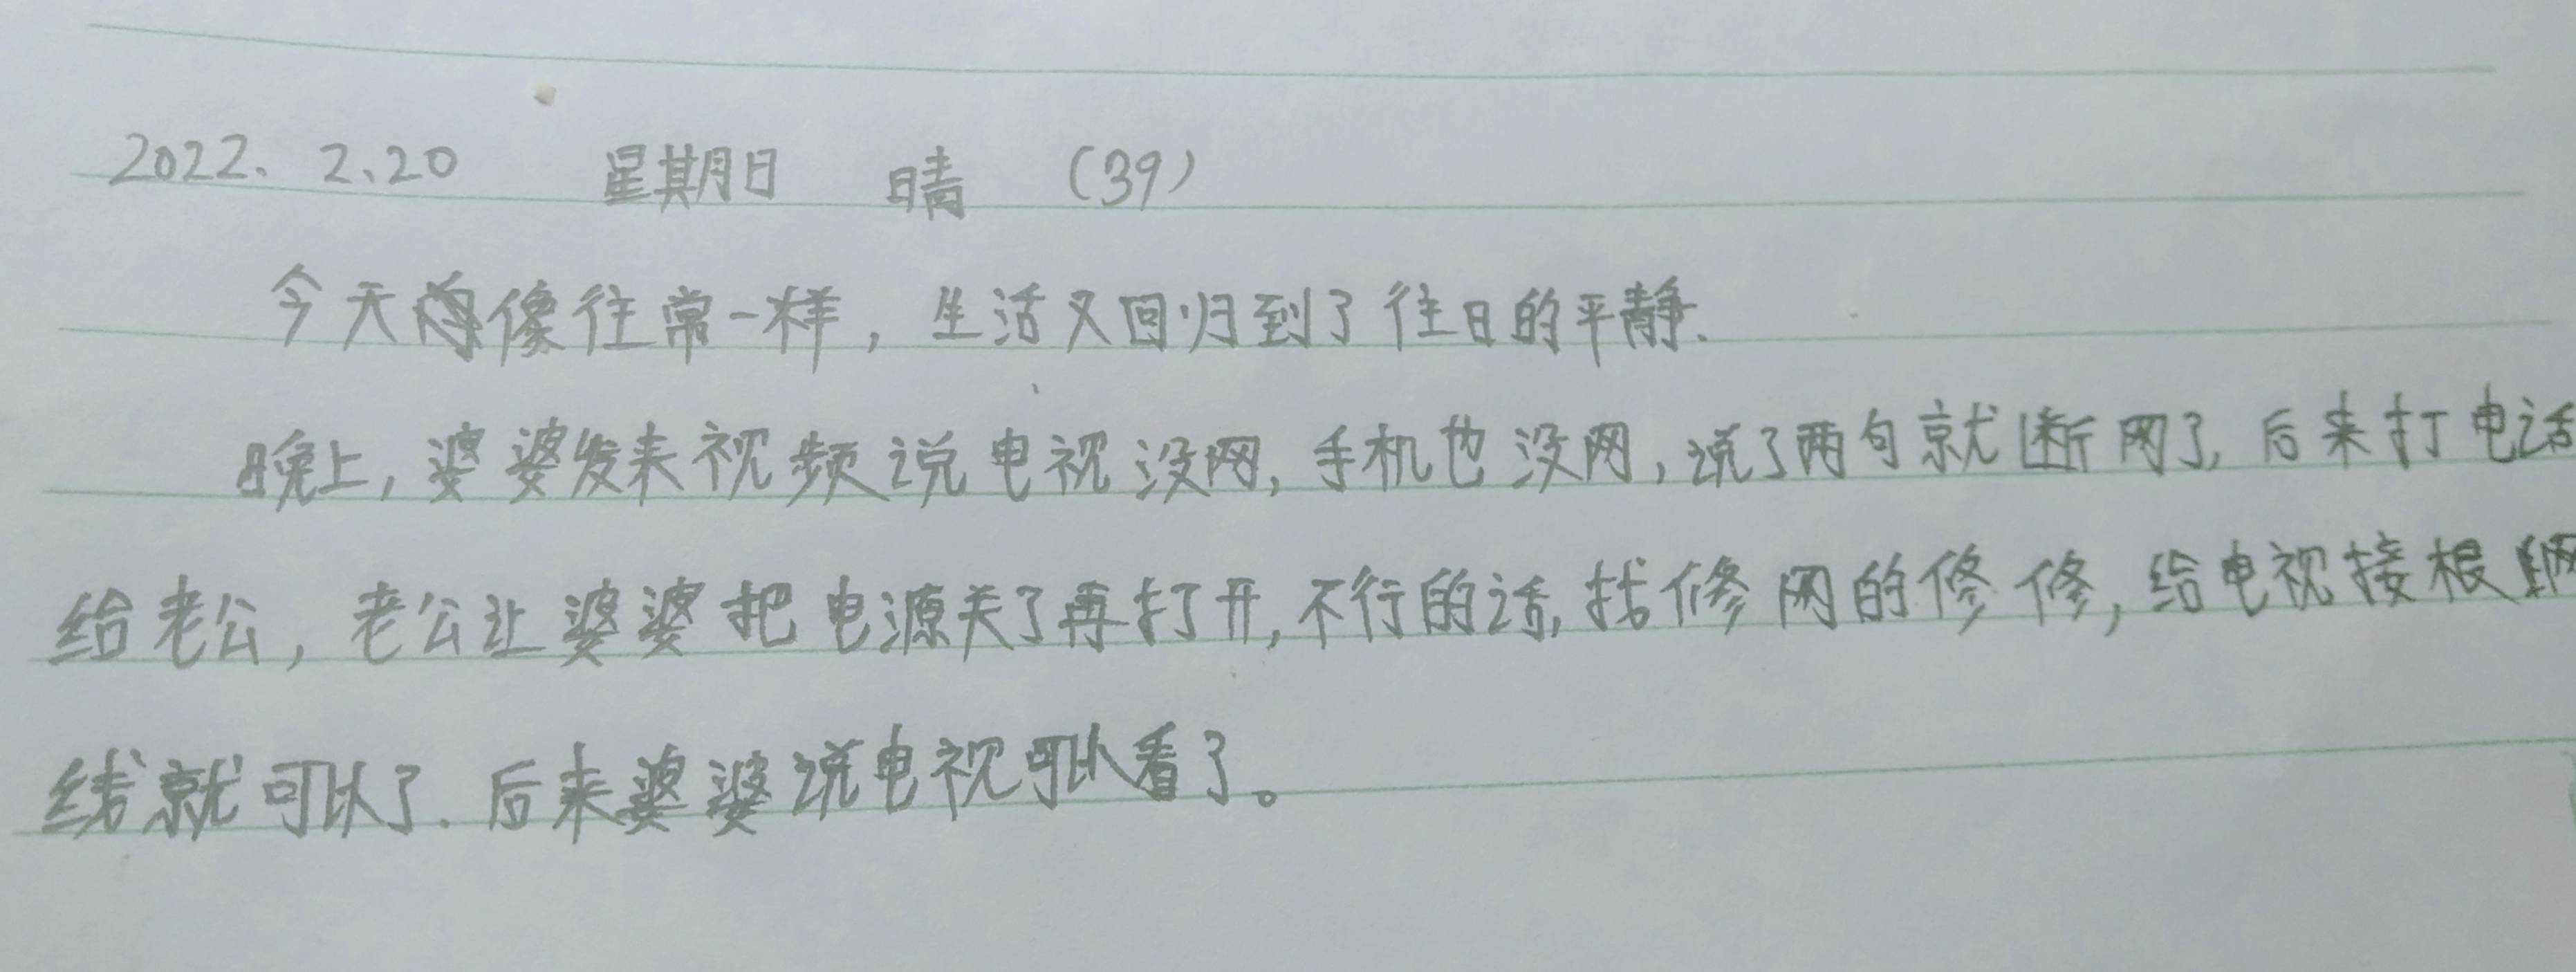 2022、2、20 星期日 晴 (39)
今天像往常一样，生活又回归到了往日的平静.
晚上，婆婆发来视频说电视没网，手机也没网，说了两句就断网了，后来打电话
给老公，老公让婆婆把电源关了再打开，不行的话，找修网的修修，给电视接根网
线就可以了.后来婆婆说电视可以看了。